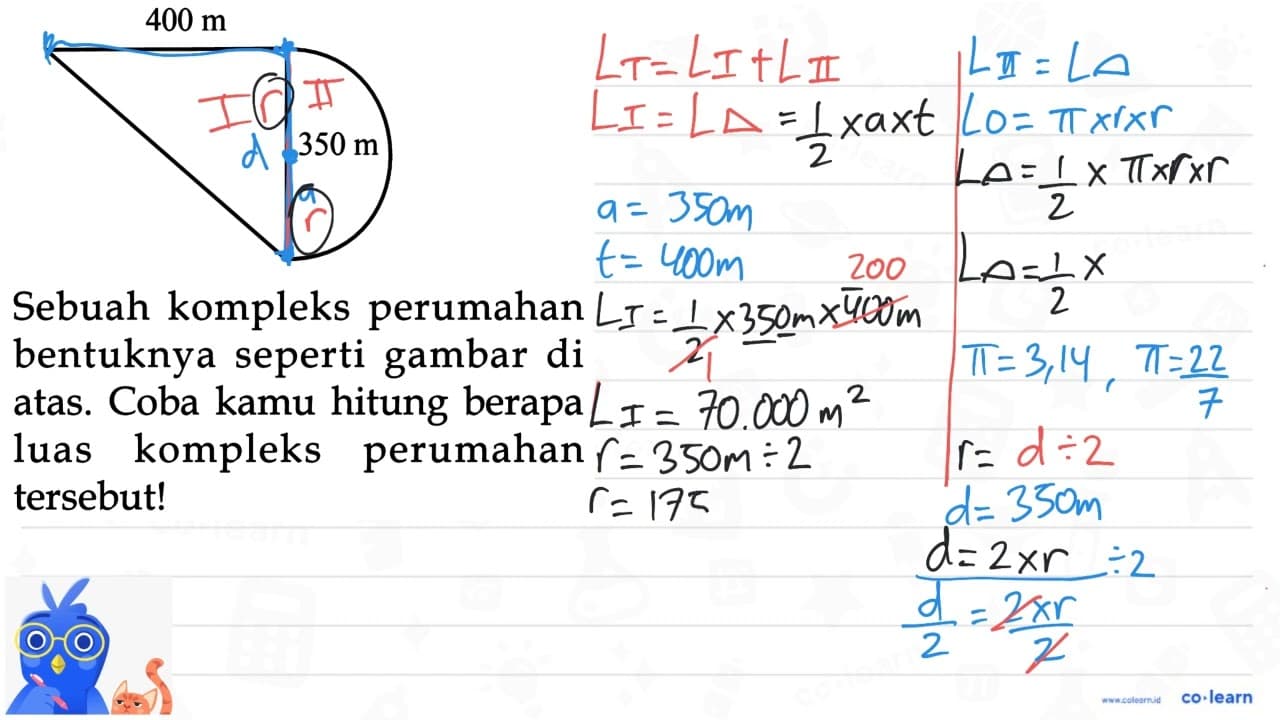 400 m
I r II
d 350 m
a
r
Sebuah kompleks perumahan
bentuknya seperti gambar di
atas. Coba kamu hitung berapa
luas kompleks perumahan
tersebut!
LT = LI + LII
LI = L△ = 1/2 x a x t
a = 350m
t = 400m
200
LI = 1/2 x 350m x 400m
1
LI = 70.000 m²
r = 350m ÷ 2
r = 175
LII = L⌓
L○ = π x r x r
L⌓ = 1/2 x π x r x r
L⌓ = 1/2 x
π = 3,14 , π = 22/7
r = d ÷ 2
d = 350m
d = 2 x r ÷ 2
d/2 = 2 x r/2
www.colearn.id co·learn